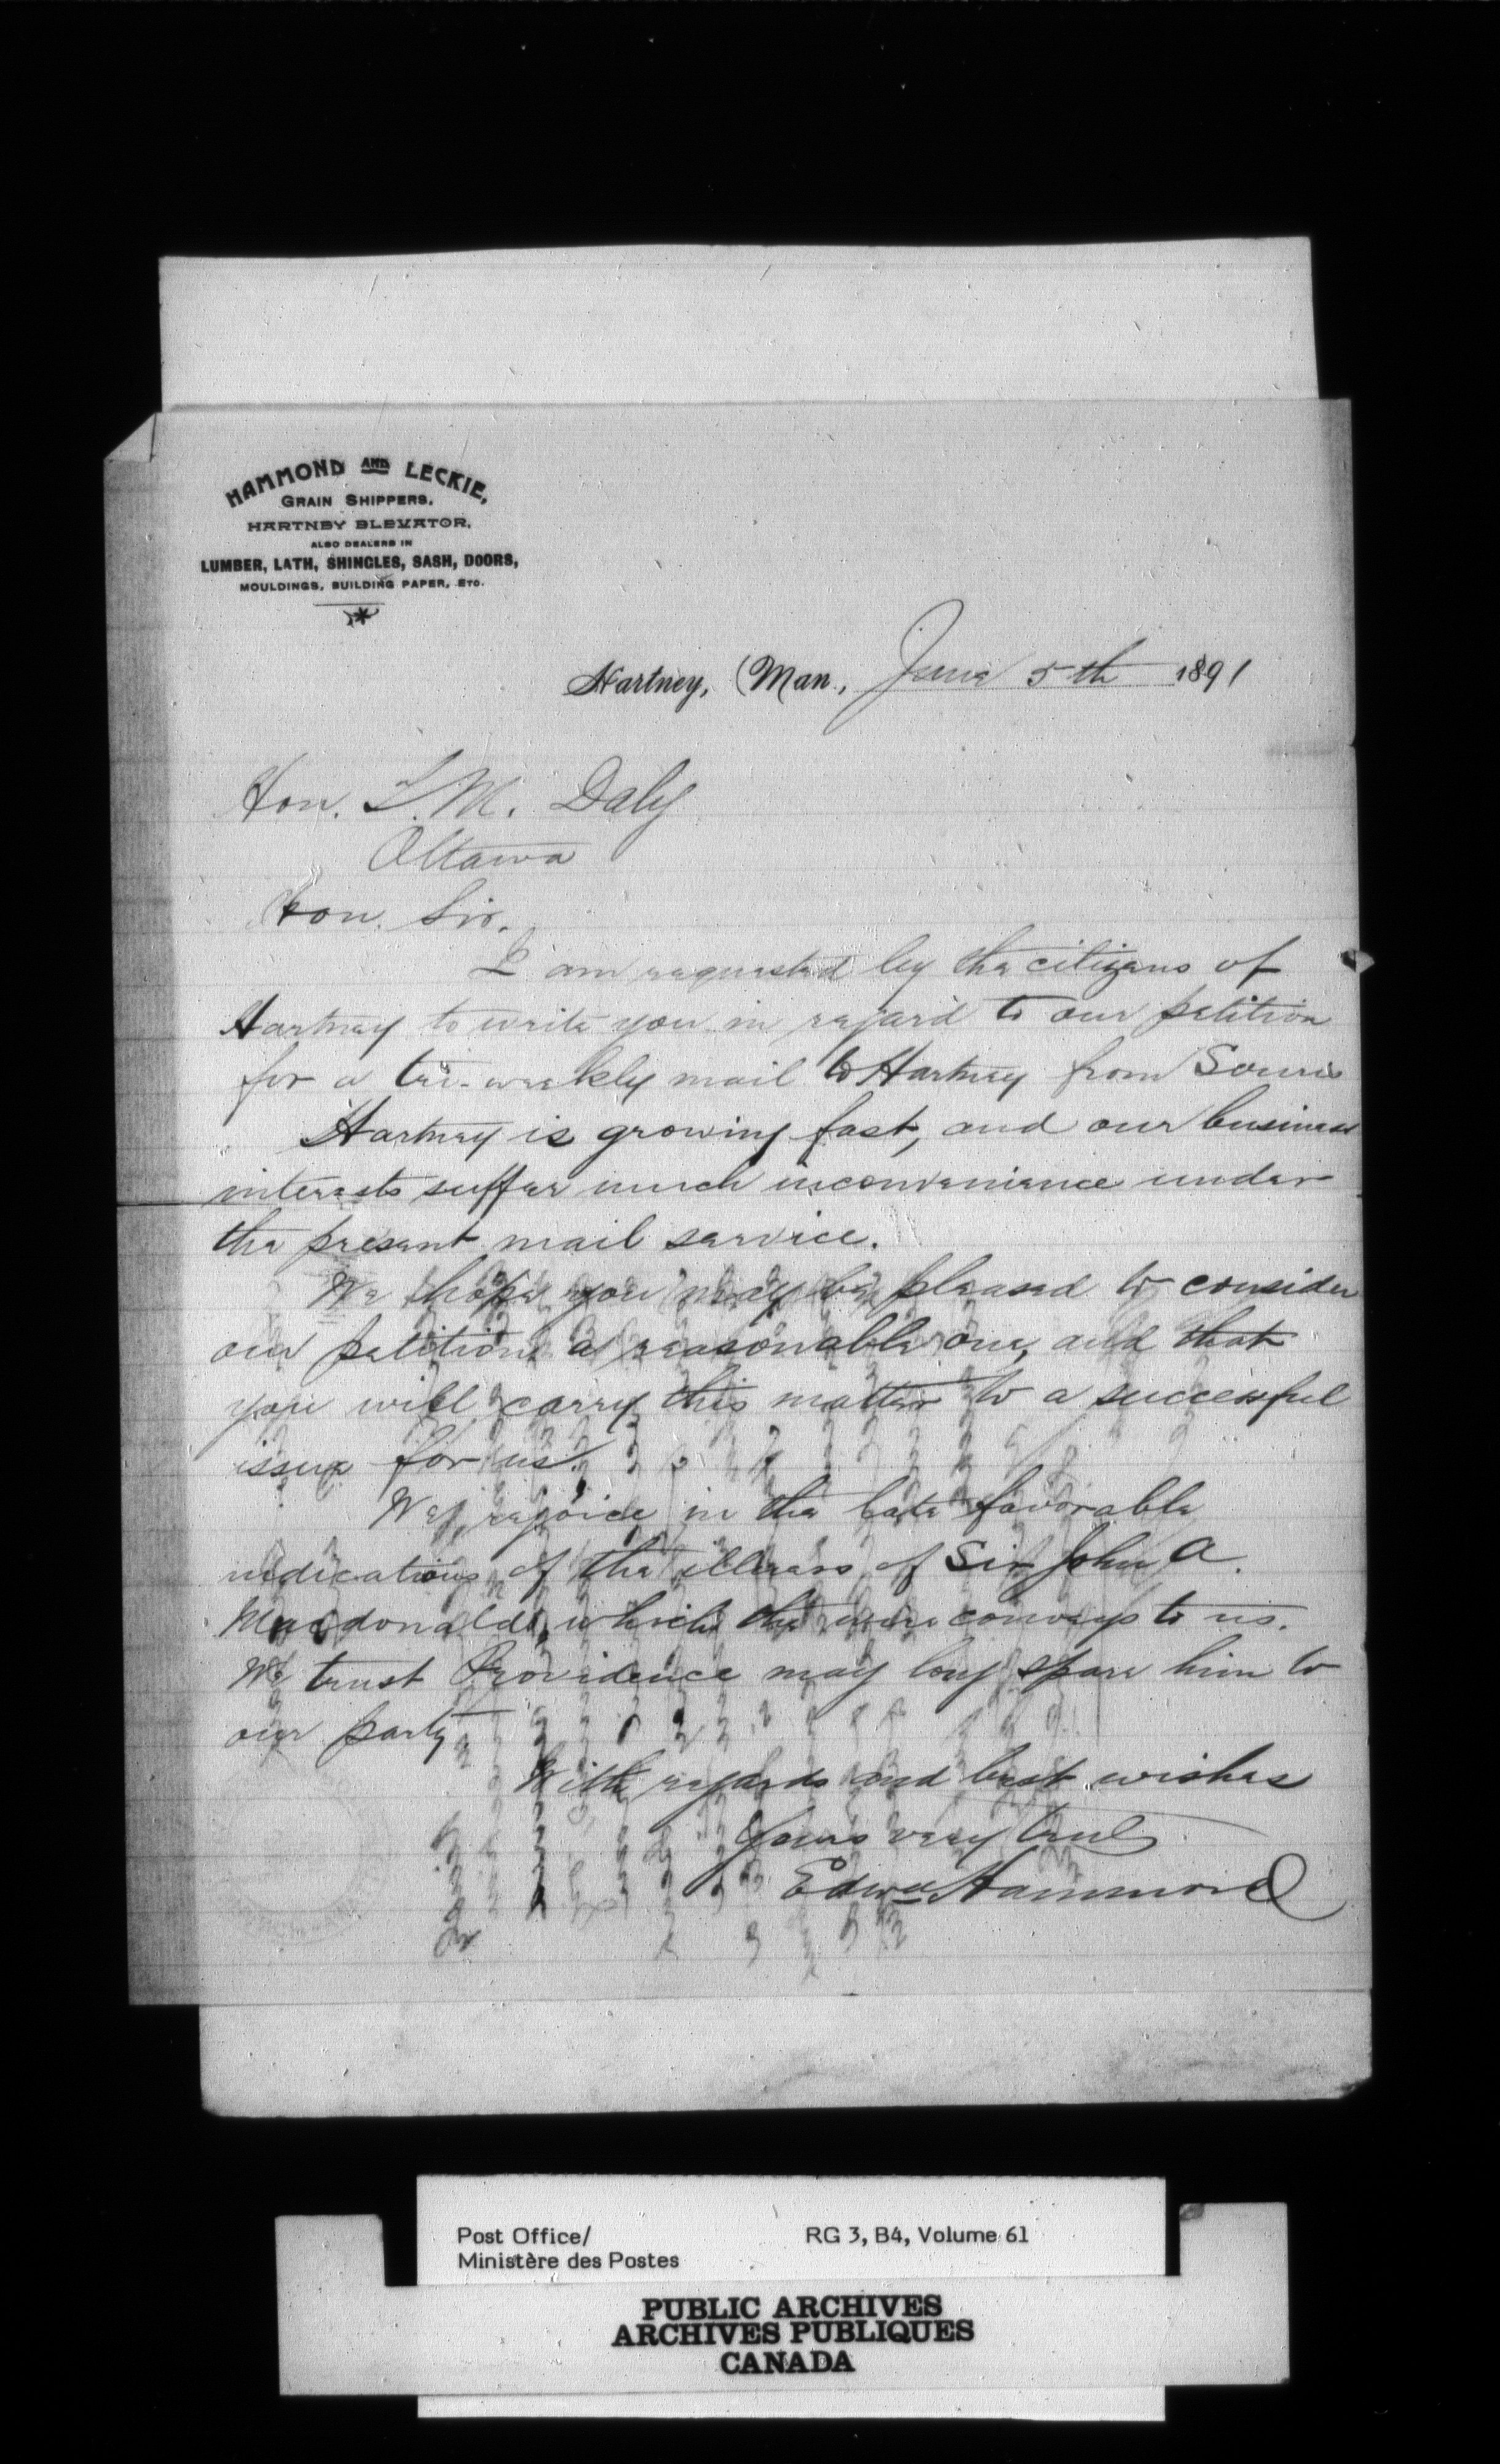 HAMMOND AND LECKIE,
GRAIN SHIPPERS,
HARTNEY ELEVATOR,
ALSO DEALERS IN
LUMBER, LATH, SHINGLES, SASH, DOORS,
MOULDINGS, BUILDING PAPER, ETC.
Hartney, Man., June 5th 1891
Hon. T. M. Daly
Ottawa
Hon. Sir.
I am requested by the citizens of
Hartney to write you in regard to our petition
for a tri-weekly mail to Hartney from Souris
Hartney is growing fast, and our business
interests suffer much inconvenience under
the present mail service.
We hope you may be pleased to consider
our petition a reasonable one, and that
you will carry this matter to a successful
issue for us.
We rejoice in the late favorable
indications of the illness of Sir John A.
Macdonald, which the wire conveys to us.
We trust Providence may long spare him to
our party.
With regards and best wishes
Yours very truly
Edwd Hammond
Post Office/ RG 3, B4, Volume 61
Ministère des Postes
PUBLIC ARCHIVES
ARCHIVES PUBLIQUES
CANADA